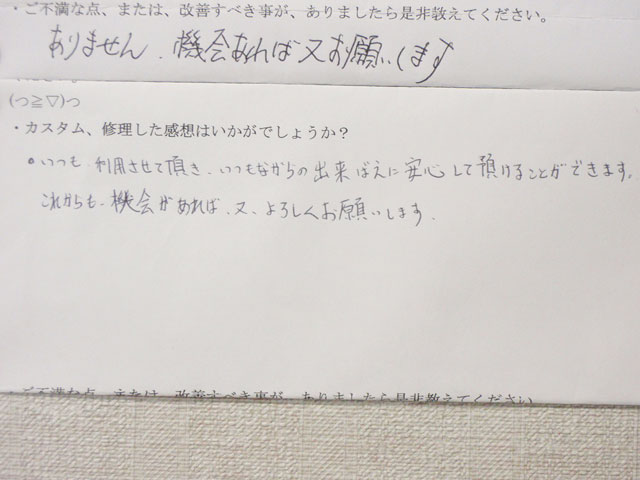 ・ご不満な点、または、改善すべき事が、ありましたら是非教えてください。
ありません. 機会あれば又お願いします
(つ≧▽)つ
・カスタム、修理した感想はいかがでしょうか？
•いつも利用させて頂き、いつもながらの出来ばえに安心して預けることができます。
これからも、機会があれば、又、よろしくお願いします.
ご不満な点、または、改善すべき事が、ありましたら是非教えてください